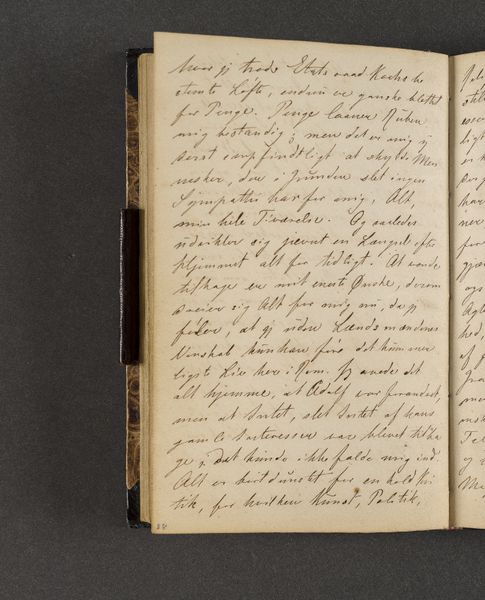 Hvor jeg trods Etatsraad Kochs be
stemte Løfte, endnu er ganske blottet
for Penge. Penge laaner Ruben
mig bestandig; men det er mig ij
derst ompfindtligt at skylde Men
nesker, der i Grunden slet ingen
Sympathi har for mig, Alt,
min hele Tilværelse. Og saaledes
udvikler sig jævnt en Længsel efter
Hjemmet alt for tidligt. At vende
tilbage er mit eneste Ønske, derom
dreier sig Alt for mig nu, da jeg
føler, at ij uden Landsmændenes
Venskab kun kan føre det kummer
ligste Liv her i Rom. Jeg vidste det
alt hjemme, at Adolf var forandret,
men at Intet, slet Intet af hans
gamle Interesser var blevet tilba
ge, Det kunde ikke falde mig ind.
Alt er bortdunstet for en kold Kri
tik, for hvilken Kunst, Politik,